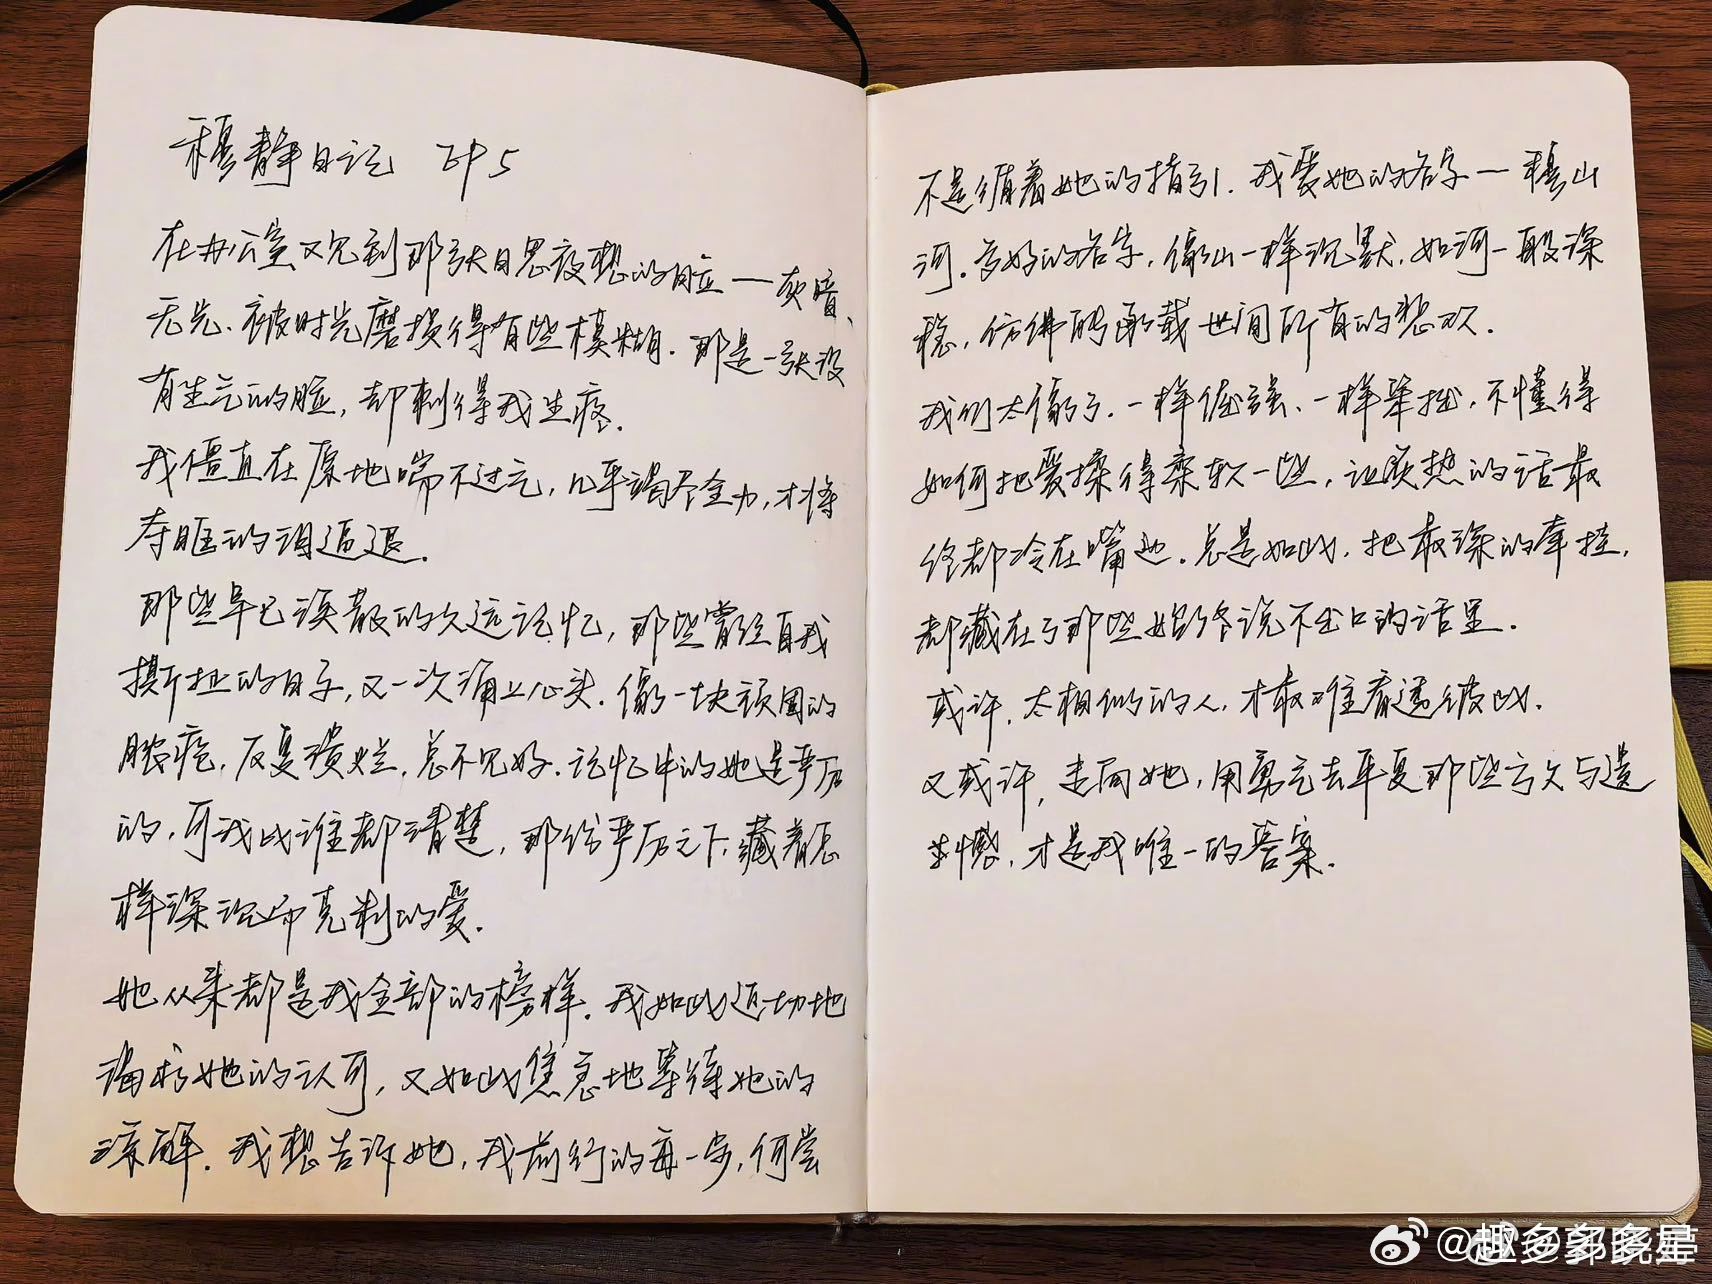 穆静日记 EP5
在办公室又见到那张日思夜想的脸——灰暗、
无光、被时光磨损得有些模糊.那是一张没
有生气的脸,却刺得我生疼.
我僵直在原地喘不过气,几乎竭尽全力,才将
夺眶的泪逼退.
那些早已涣散的久远记忆,那些曾经自我
撕扯的日子,又一次涌上心头.像一块顽固的
脓疮,反复溃烂,总不见好.记忆中的她是严厉
的,可我比谁都清楚,那份严厉之下,藏着怎
样深沉而克制的爱.
她从来都是我全部的榜样.我如此迫切地
渴求她的认可,又如此焦急地等待她的
谅解.我想告诉她,我前行的每一步,何尝
不是循着她的指引.我爱她的名字——穆山
河.多好的名字,像山一样沉默,如河一般深
稳,仿佛能承载世间所有的悲欢.
我们太像了.一样倔强、一样笨拙,不懂得
如何把爱揉得柔软一些,让滚热的话最
终都冷在嘴边.总是如此,把最深的牵挂,
都藏在了那些始终说不出口的话里.
或许,太相似的人,才最难看透彼此.
又或许,走向她,用勇气去平复那些亏欠与遗
憾,才是我唯一的答案.